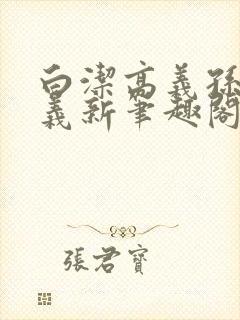 白潔高義孫
義新筆趣閣
張君寶